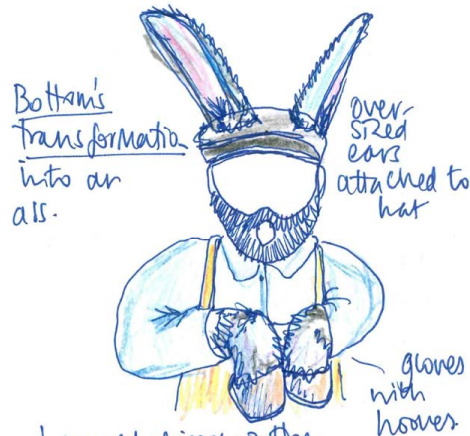 Bottom's
transformation
into an
ass.
over-
sized
ears
attached to
hat
gloves
with
hooves.